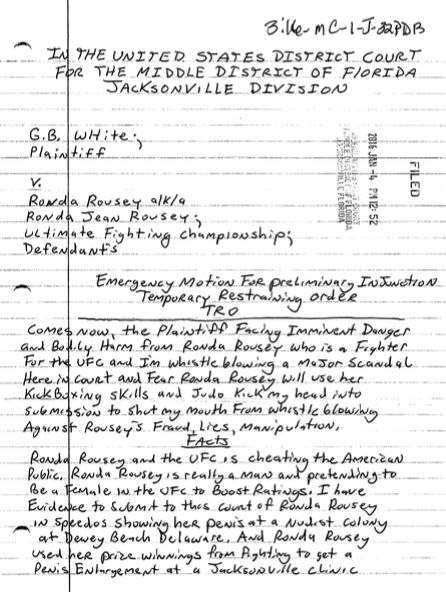 3:16-mc-1-J-32PDB
IN THE UNITED STATES DISTRICT COURT
FOR THE MIDDLE DISTRICT OF FLORIDA
JACKSONVILLE DIVISION
G.B. WHite;
Plaintiff
V.
Ronda Rousey a/k/a
Ronda Jean Rousey;
Ultimate Fighting championship;
Defendants
FILED
2016 JAN -4 PM 12:52
Emergency Motion For preliminary Injunction
Temporary Restraining order
TRO
Comes Now, the Plaintiff Facing Imminent Danger
and Bodily Harm from Ronda Rousey who is a Fighter
For the UFC and Im whistle blowing a Major Scandal
Here in court and Fear Ronda Rousey will use her
Kick Boxing skills and Judo Kick my head into
submission to shut my mouth From whistle blowing
Against Rousey's Fraud, Lies, Manipulation.
Facts
Ronda Rousey and the UFC is cheating the American
Public. Ronda Rousey is really a man and pretending to
Be a Female in the UFC to Boost Ratings. I have
Evidence to submit to this court of Ronda Rousey
in speedos showing her penis at a Nudist colony
at Dewey Beach Delaware. And Ronda Rousey
used her prize winnings from fighting to get a
Penis Enlargement at a Jacksonville clinic